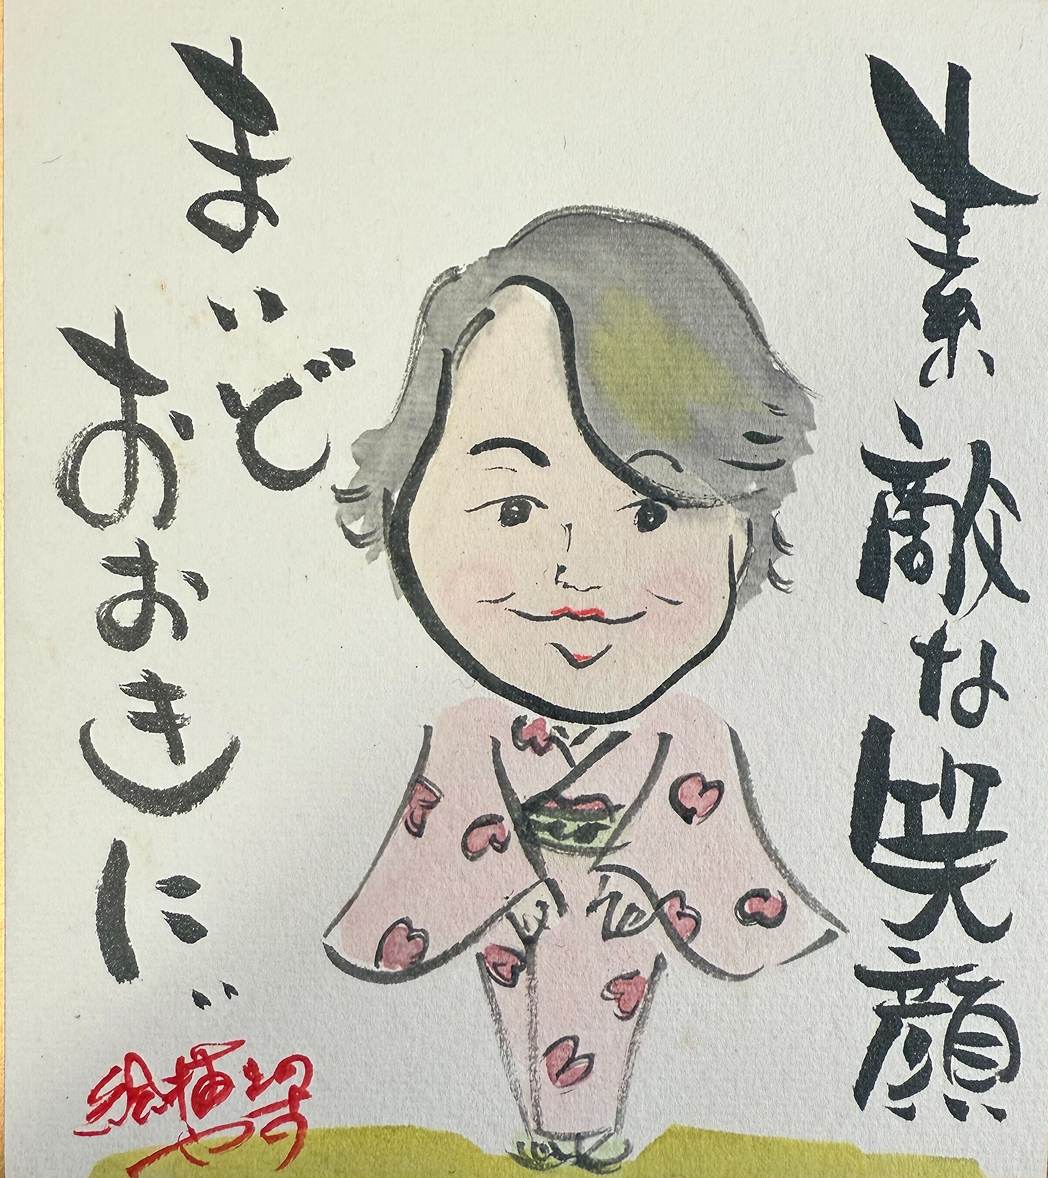 素敵な笑顔
まいど
おおきに〃